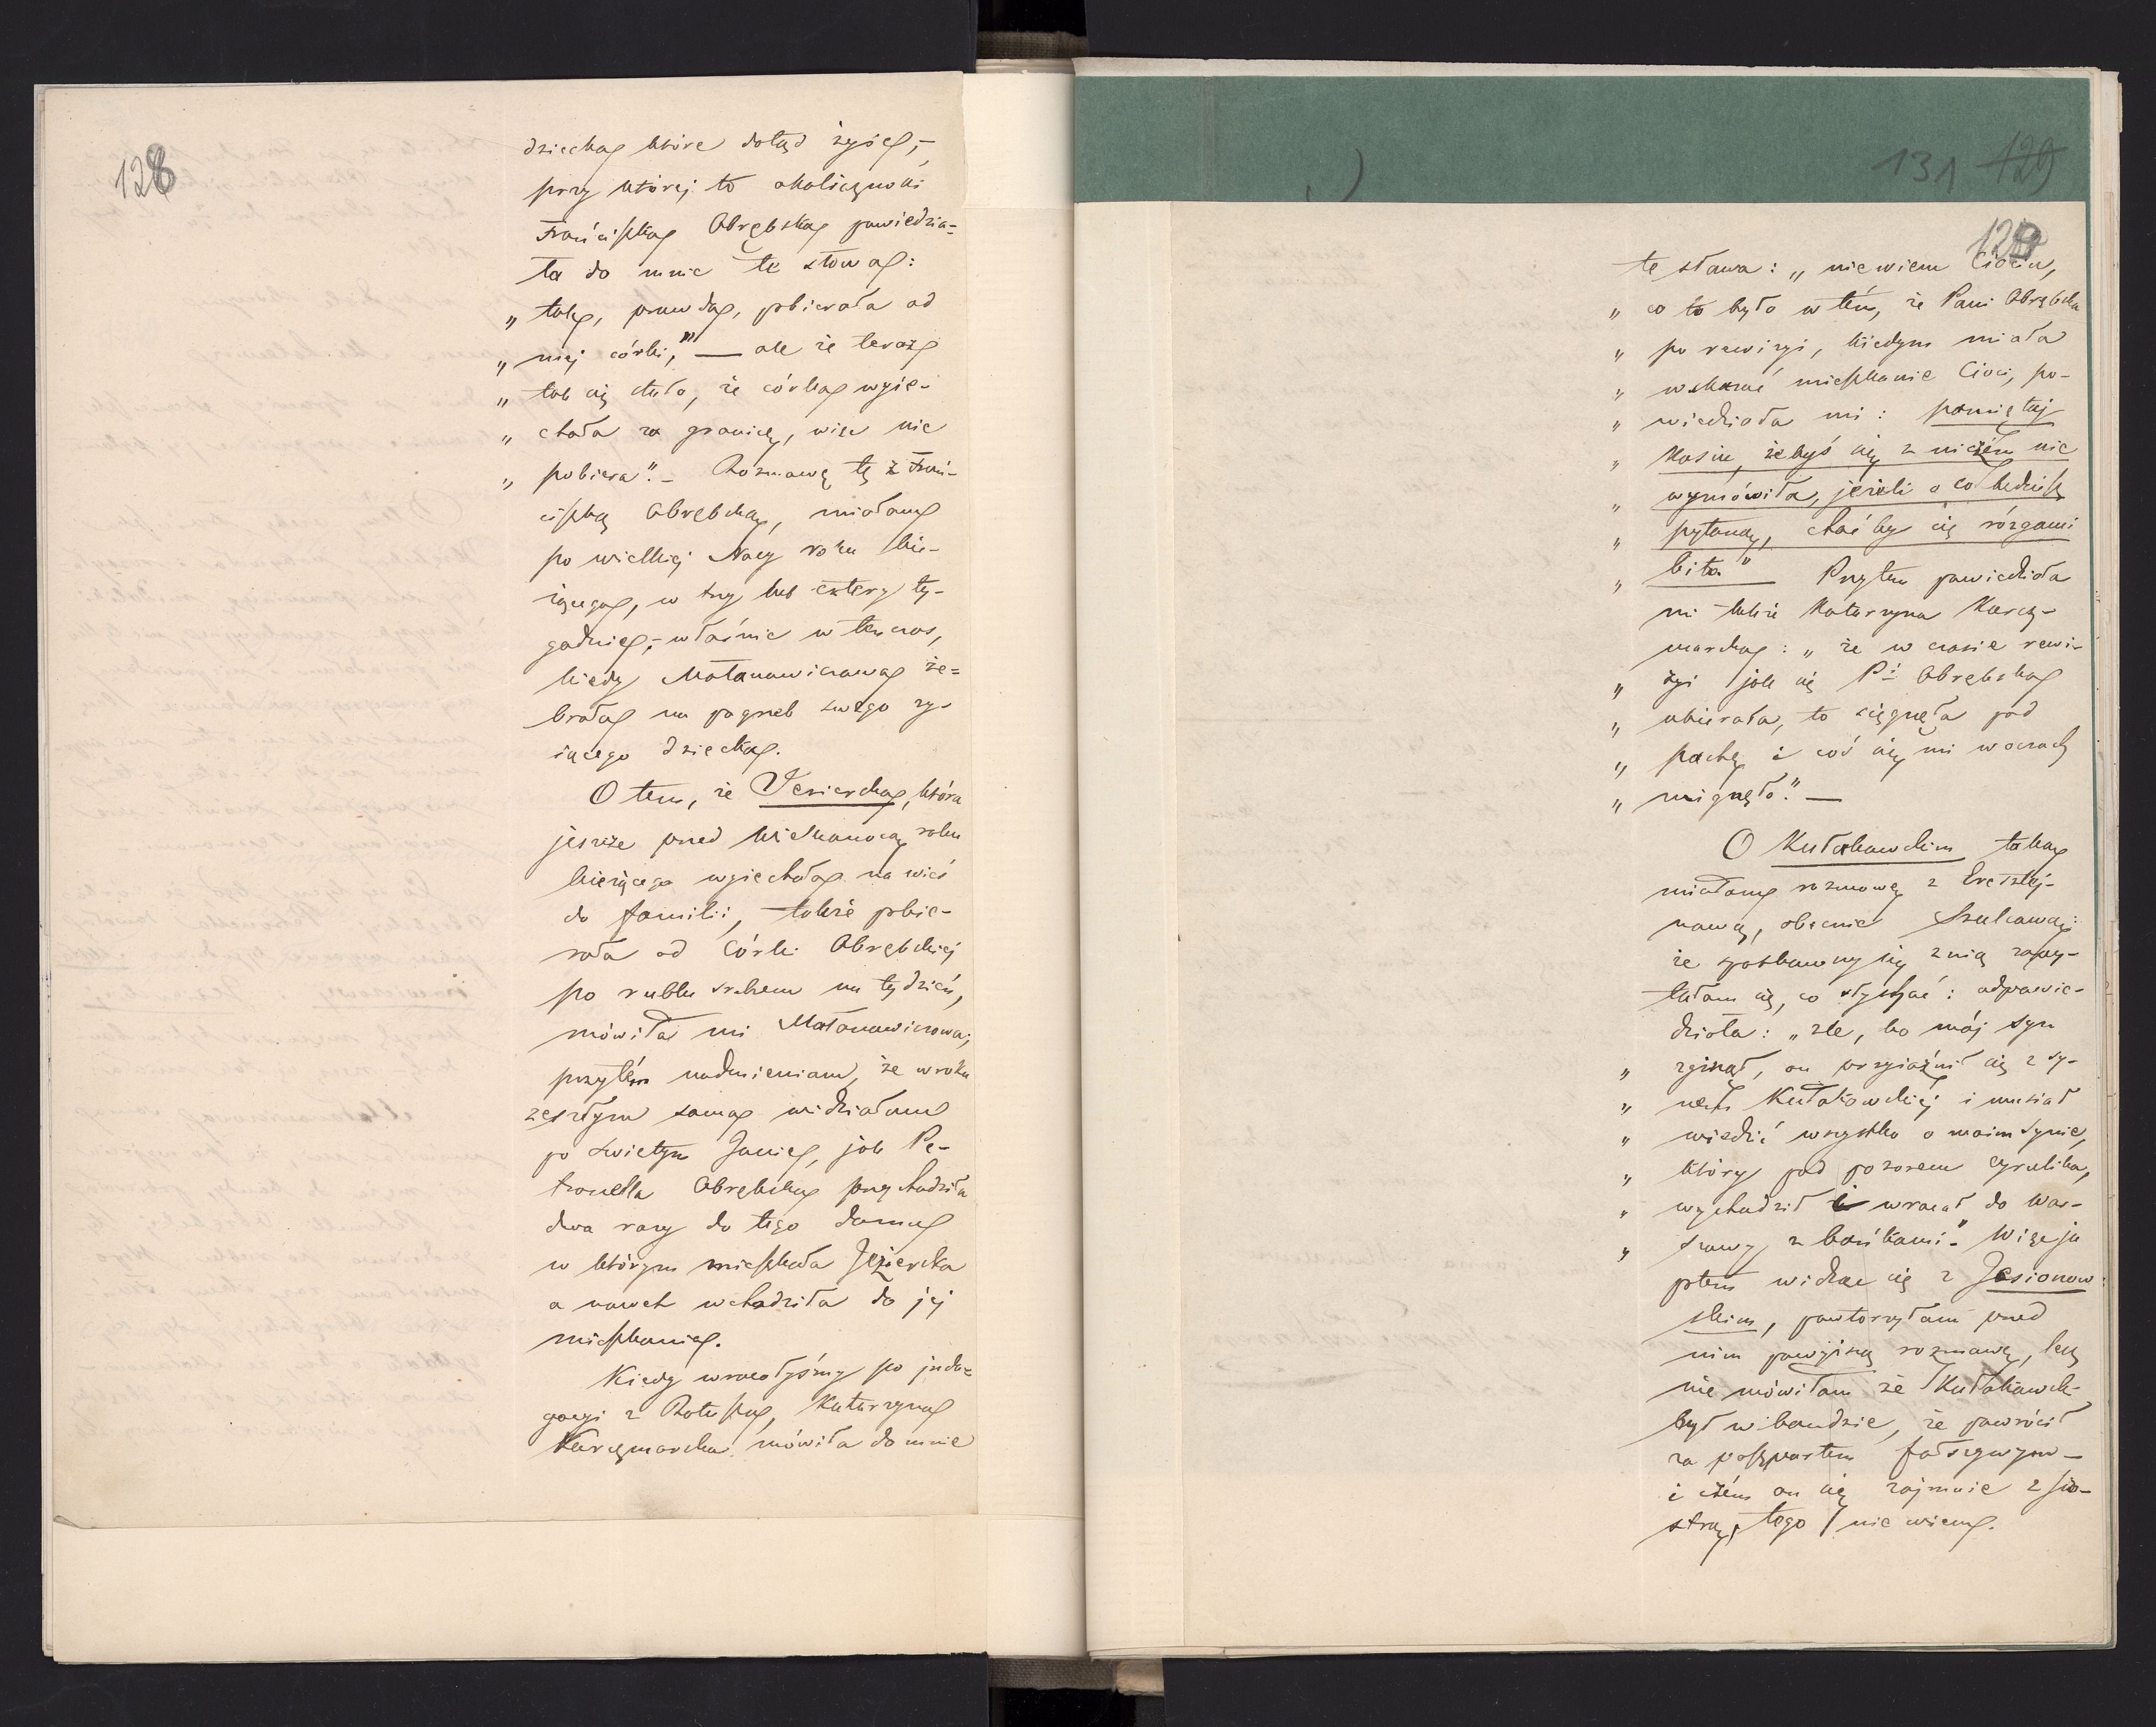 128
dziecka które dotąd żyje,-
przy której to okoliczności
Frańciszka Obrębska powiedzia=
ła do mnie te słowa:
„ tak, prawda, pobierała od
„ niej córki," — ale że teraz
„ tak się stało, że córka wyje-
„ chała za granicę, więc nie
„ pobiera". - Rozmowę tę z Frań-
ciszką Obrębską, miałam
po wielkiej Nocy roku bie-
żącego, w trzy lub cztery ty-
godnie,- właśnie w ten czas,
kiedy Matanowiczowa że=
brała na pogrzeb swego ży-
jącego dziecka.
O tem, że Jezierska, która
jeszcze przed Wielkanocą roku
bieżącego wyjechała na wieś
do familii, także pobie-
rała od Córki Obrębskiej
po rublu srebrem na tydzień,
mówiła mi Matanowiczowa;
przytém nadmieniam, że w roku
zeszłym sama widziałam
po świetym Janie, jak Pe-
tronella Obrębska przychodziła
dwa razy do tego domu
w którym mieszkała Jezierska
a nawet wchodziła do jej
mieszkania.
Kiedy wracałyśmy po inda-
gacyi z Ratusza, Katarzyna
Karczmarska mówiła do mnie
131 129
129
te słowa: „ niewiem Ciociu,
„ co to było w tém, że Pani Obrębska
„ po rewizyi, kiedym miała
„ wskazać mieszkanie Cioci, po-
„ wiedziała mi: pamiętaj
„ Kasiu, żebyś się z niczém nie
„ wymówiła, jeżeli o co będziesz
„ pytana, choćby cię rózgami
„ bito" Przytem powiedziała
mi także Katarzyna Karcz-
marska: „ że w czasie rewi-
„ zyi jak się Pi Obrębska
„ ubierała, to sięgnęła pod
„ pachę i coś się mi w oczach
„ mignęło." —
O Kułakowskim taką
miałam rozmowę z Eretztej-
nową, obecnie Szulcową:
że spotkawszy się z nią zapy-
tałam się, co słychać: odpowie-
działa: „ źle, bo mój syn
„ zginął, on przyjaźnił się z sy-
„ nem Kułakowskiéj i musiał
„ wiedzić wszystko o moim synie,
„ który pod pozorem cyrulika,
„ wychodził i wracał do War-
„ szawy z bańkami." Więc ja
potem widząc się z Jasionow=
skim, powtorzyłam przed
nim powyższą rozmowę, lecz
nie mówiłam że Kułakowski
był w bandzie, że powrócił
za paszportem fałszywym —
i czém on się zajmuie z sio-
strą, tego nie wiem.